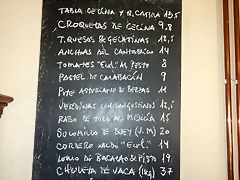 TABLA CECINA Y Q. CABRA 13,5
CROQUETAS DE CECINA 9,8
ANCHOAS DEL CANTABRICO 14
TOMATES "Ecol." AL PESTO 8
PASTEL DE CALABACÍN 9
POTE ASTURIANO DE BERZAS
VERDINAS CON LANGOSTINOS
RABO DE TORO AL MENCÍA 15
SOLOMILLO DE BUEY (J.M) 20
CORDERO XALDO "Ecol." 14
LOMO DE BACALAO PISTO 19
CHULETA DE VACA (1Kg) 37